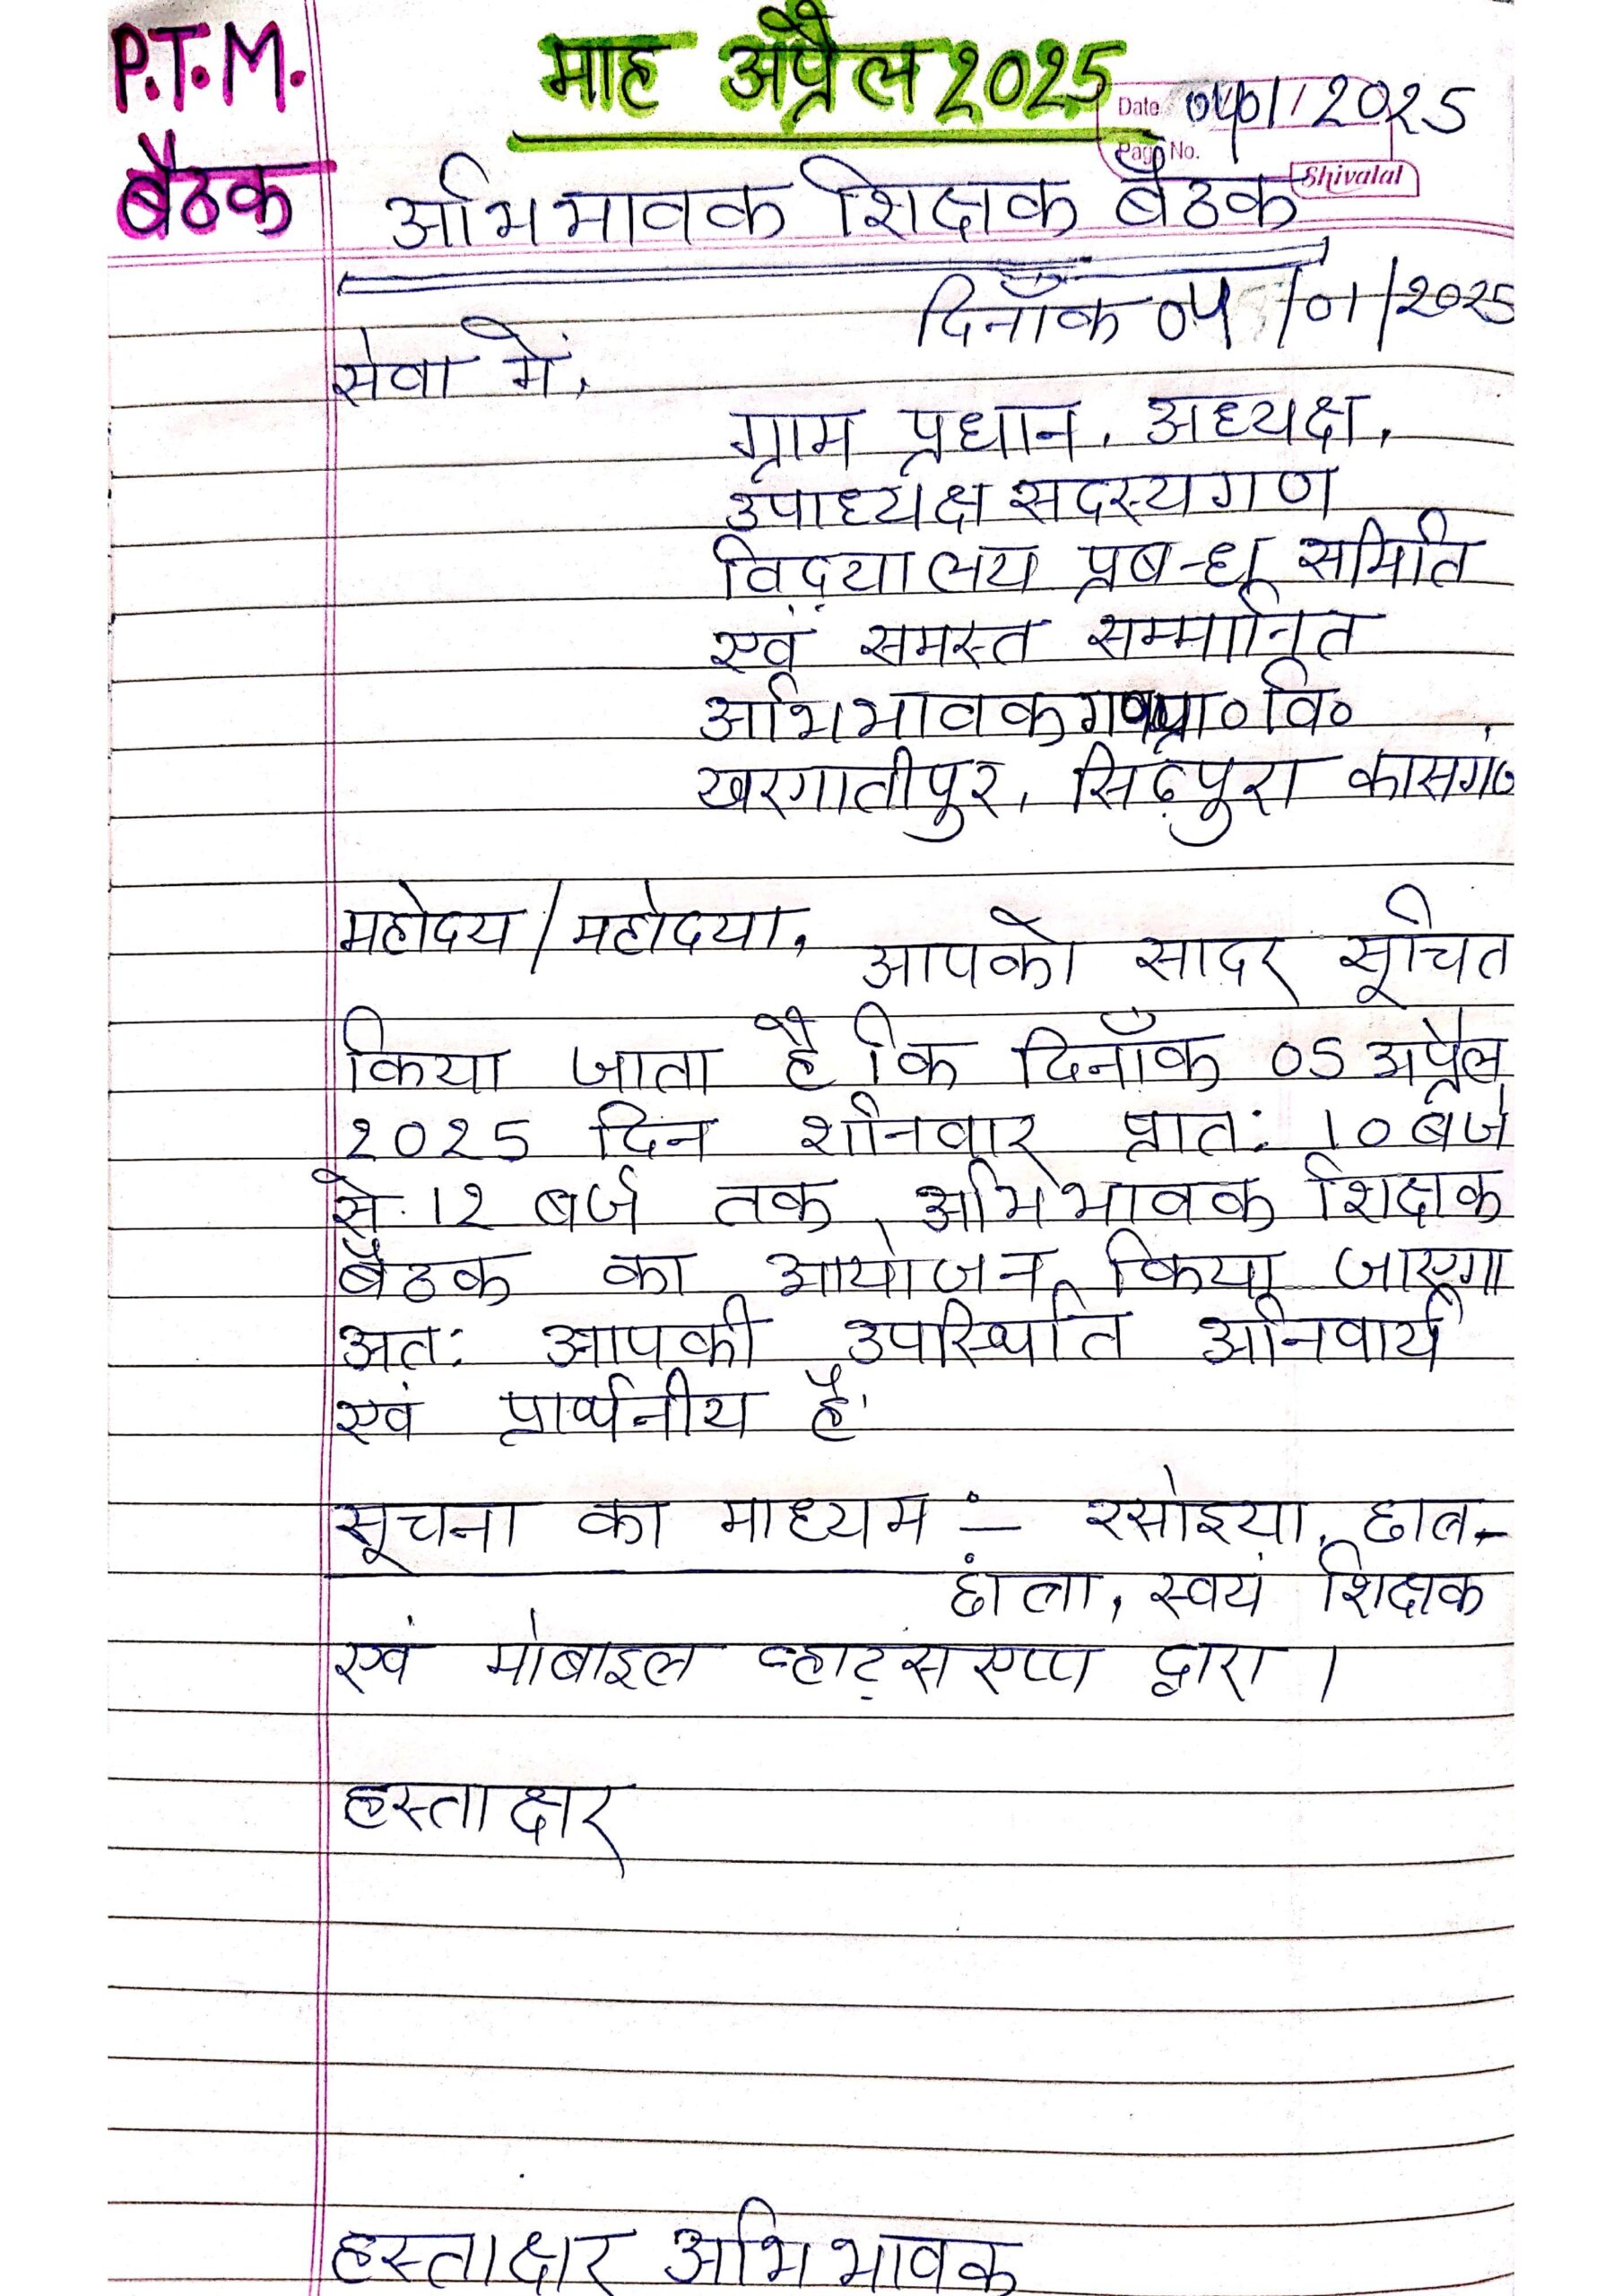 P.T.M.
बैठक
माह अप्रैल 2025
Date 04/01/2025
Page No.
Shivalal
अभिभावक शिक्षक बैठक
दिनाँक 04/01/2025
सेवा में,
ग्राम प्रधान, अध्यक्ष,
उपाध्यक्ष सदस्यगण
विद्यालय प्रबन्ध समिति
एवं समस्त सम्मानित
अभिभावकगण प्रा० वि०
खरगातीपुर, सिढ़पुरा कासगंज
महोदय/महोदया,
आपको सादर सूचित
किया जाता है कि दिनाँक 05 अप्रैल
2025 दिन शनिवार प्रातः 10 बजे
से 12 बजे तक, अभिभावक शिक्षक
बैठक का आयोजन किया जाएगा
अतः आपकी उपस्थिति अनिवार्य
एवं प्रार्थनीय है
सूचना का माध्यम :- रसोइया, छात्र-
छात्रा, स्वयं शिक्षक
एवं मोबाइल व्हाट्सएप्प द्वारा ।
हस्ताक्षर
हस्ताक्षर अभिभावक